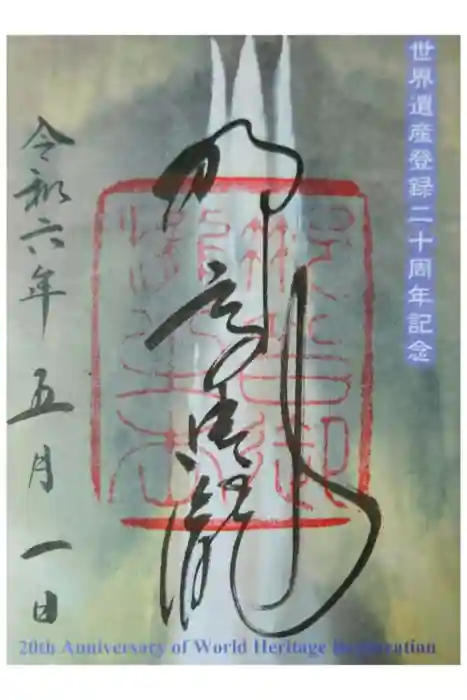 世界遺産登録二十周年記念
那智御瀧
令和六年 五月 一日
20th Anniversary of World Heritage Registration